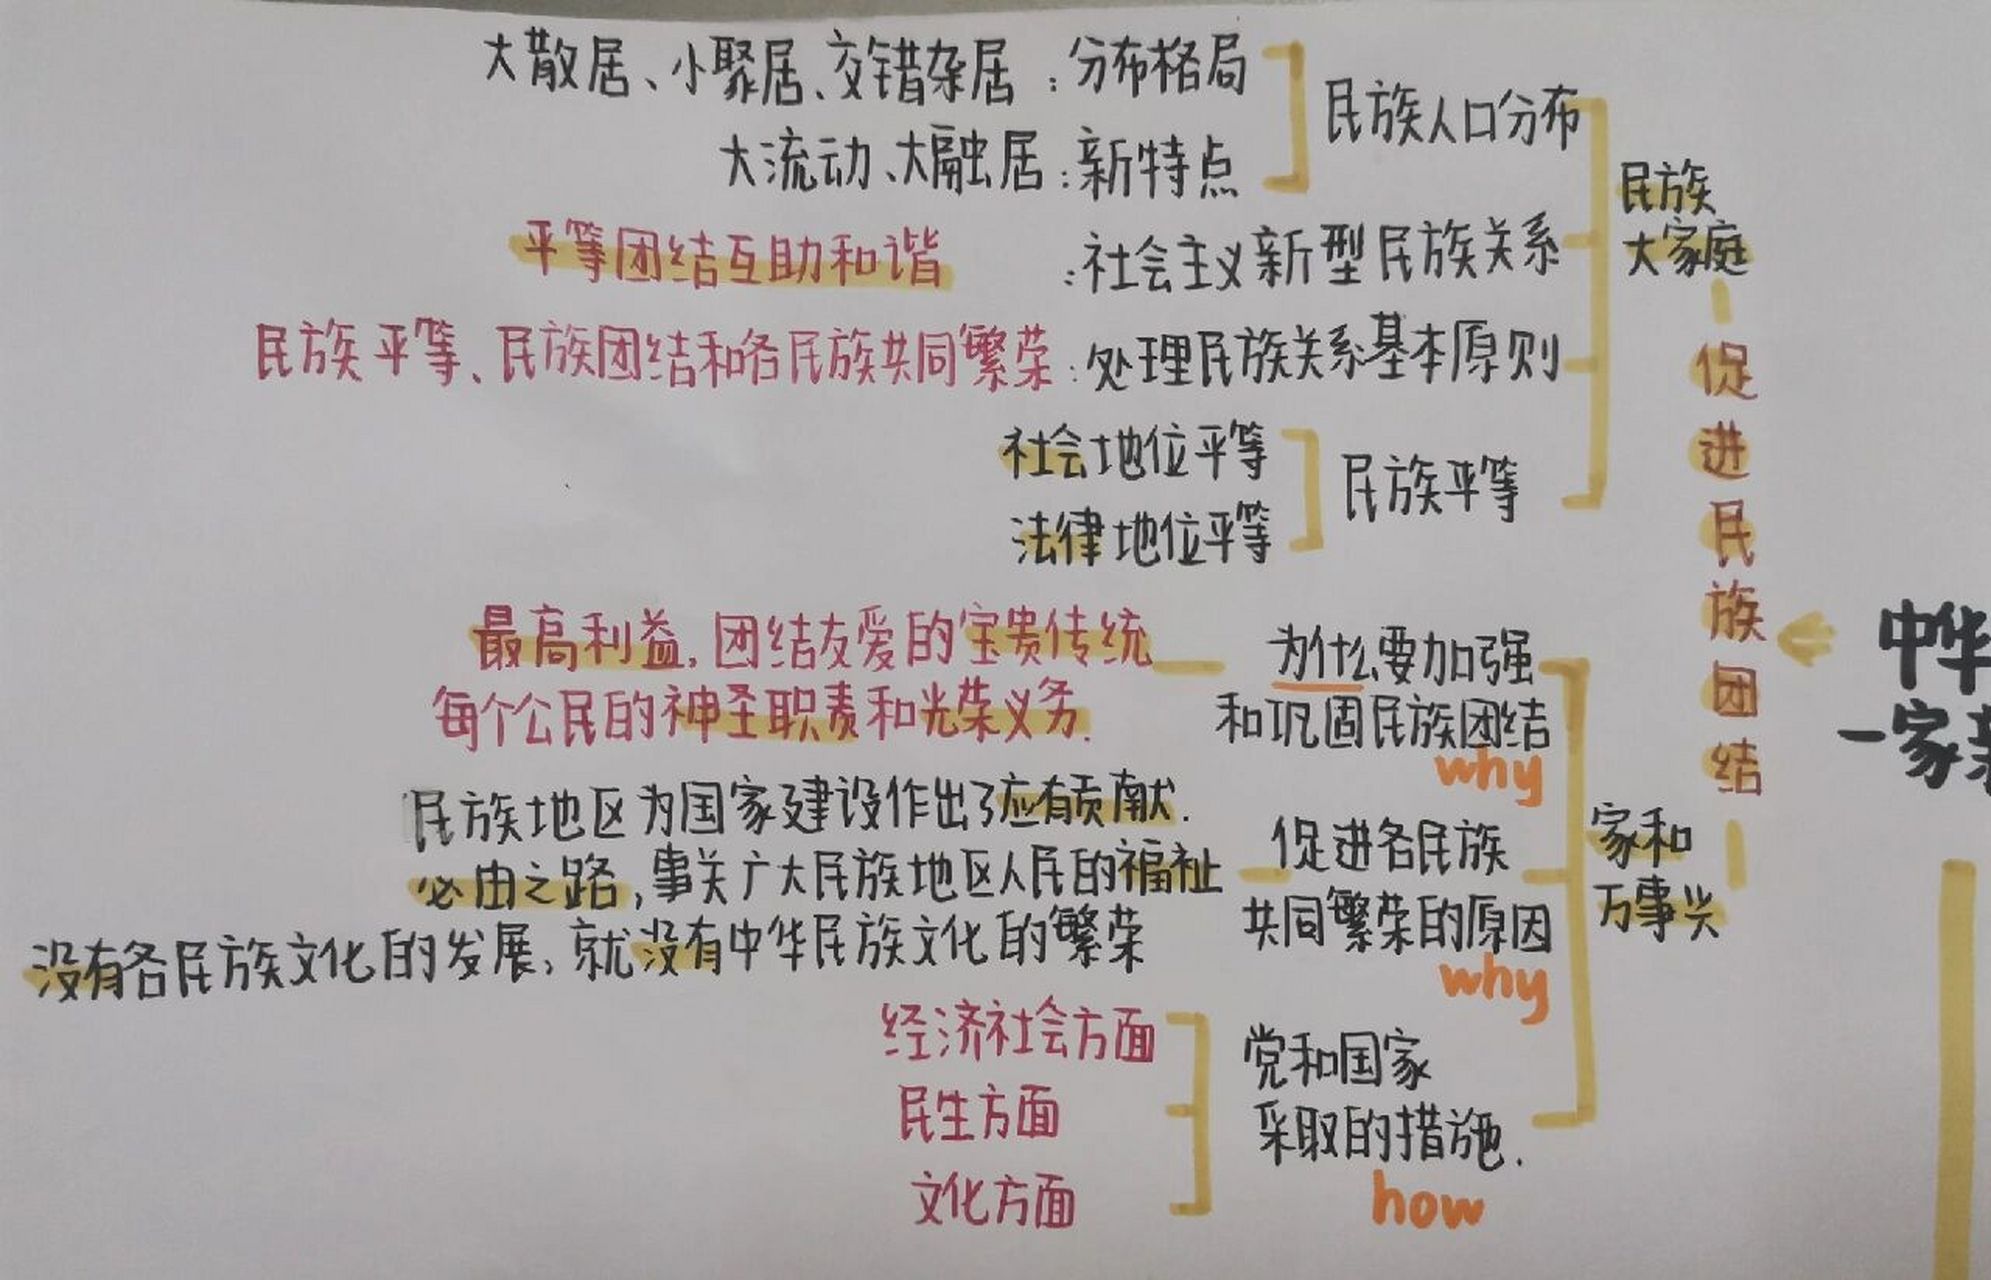 大散居、小聚居、交错杂居：分布格局
大流动、大融居：新特点
民族人口分布
平等团结互助和谐：社会主义新型民族关系
民族平等、民族团结和各民族共同繁荣：处理民族关系基本原则
社会地位平等
法律地位平等
民族平等
民族
大家庭
促进民族团结
中华
一家亲
最高利益，团结友爱的宝贵传统
每个公民的神圣职责和光荣义务.
为什么要加强
和巩固民族团结
why
民族地区为国家建设作出了应有贡献.
必由之路，事关广大民族地区人民的福祉
没有各民族文化的发展，就没有中华民族文化的繁荣
促进各民族
共同繁荣的原因
why
家和
万事兴
经济社会方面
民生方面
文化方面
党和国家
采取的措施.
how